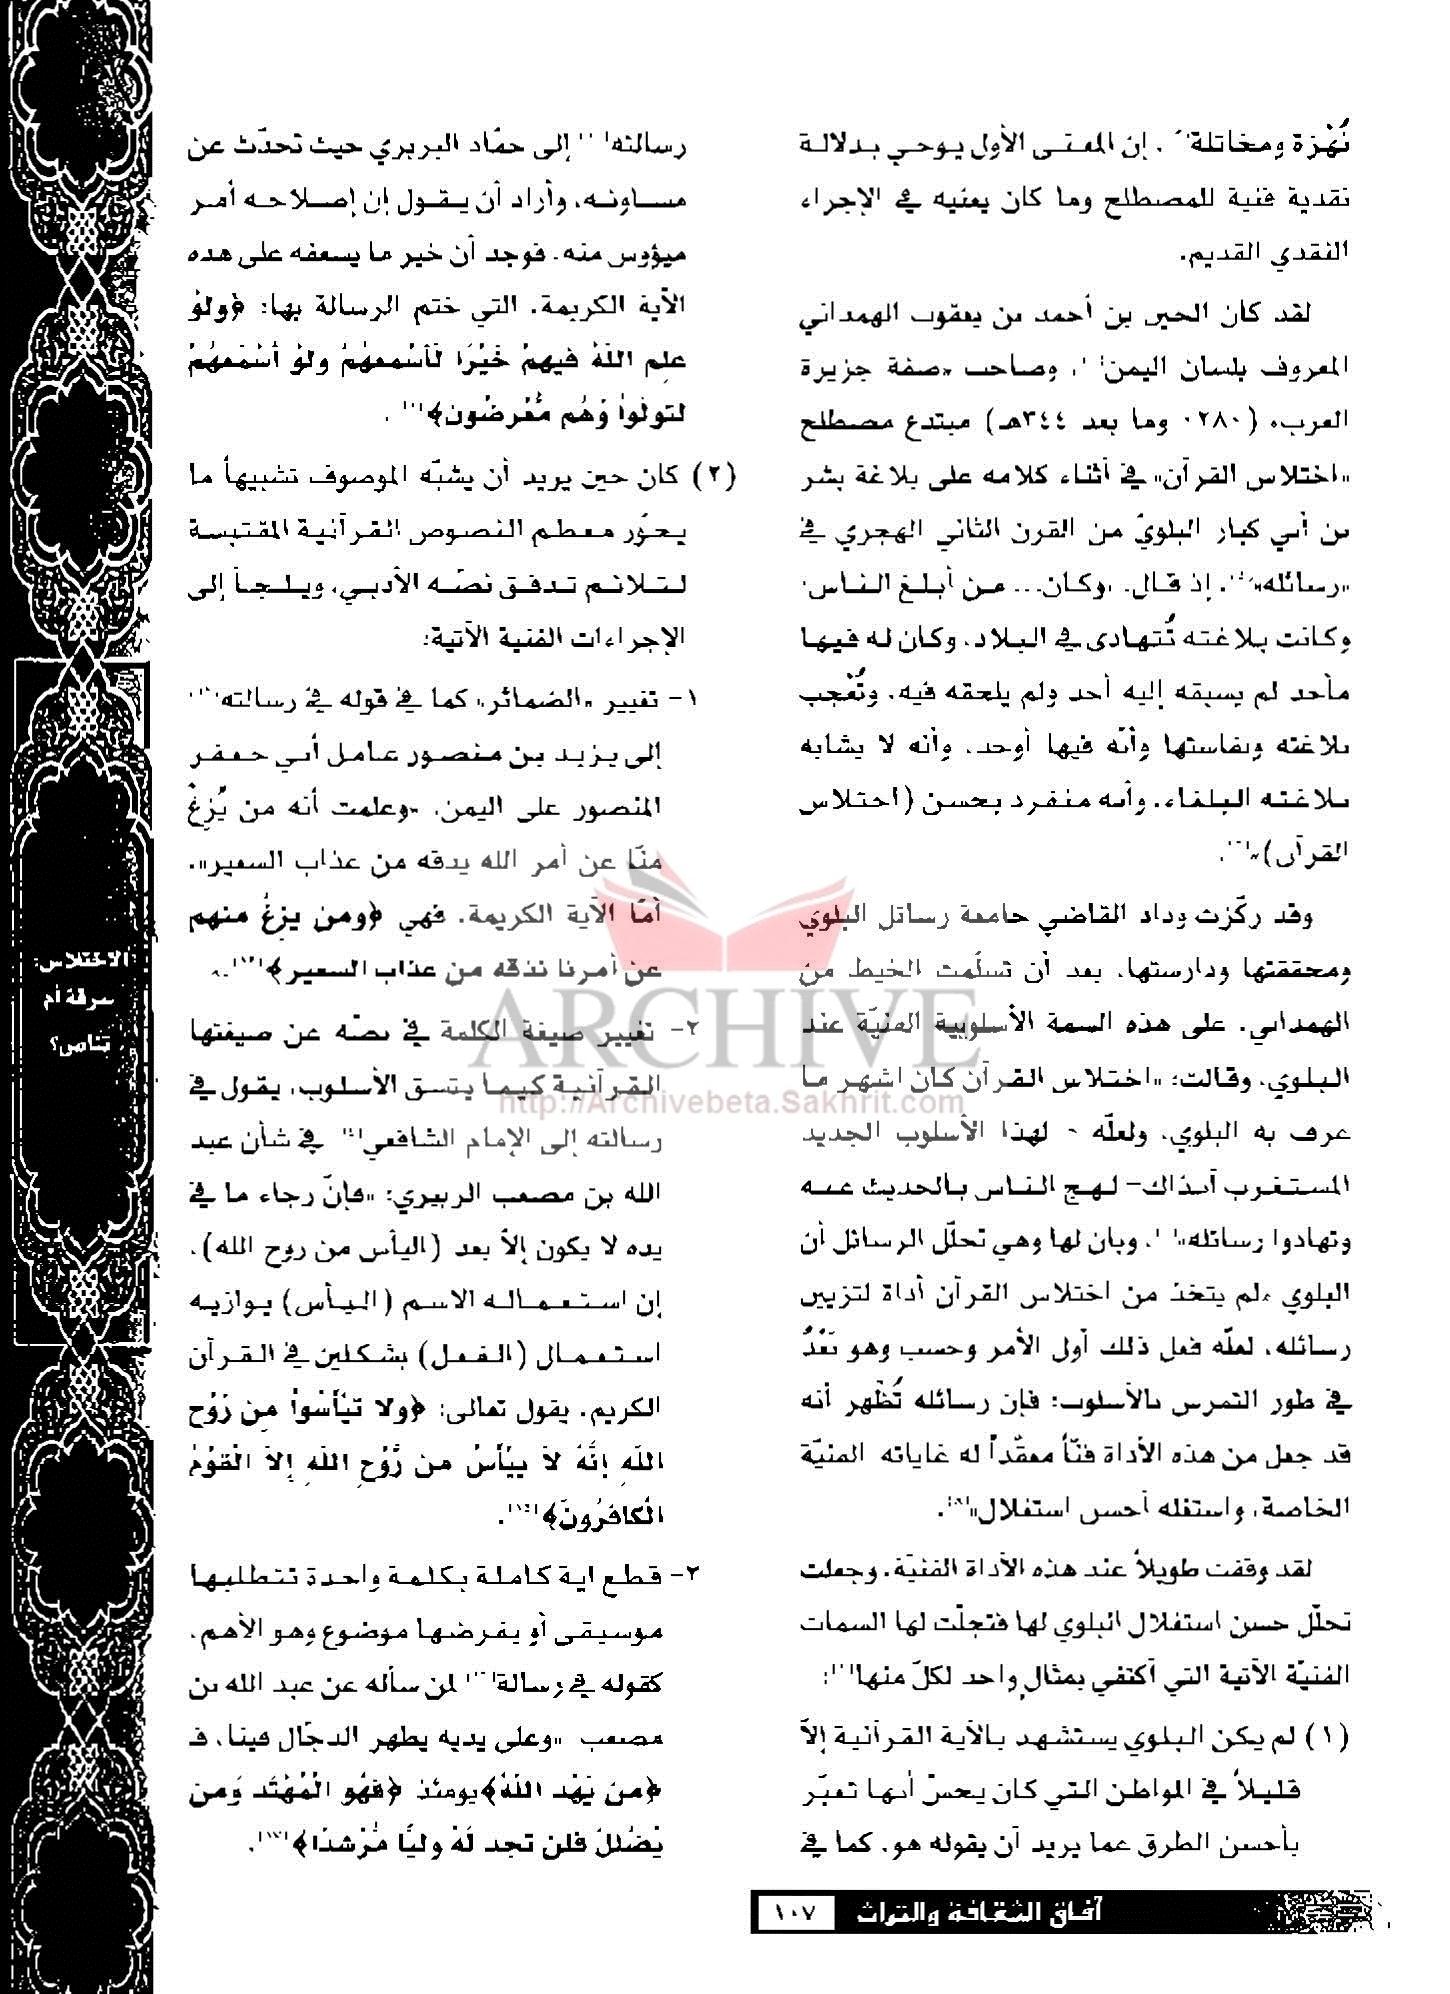 نُهْزة ومخاتلة. إن المعنى الأول يوحي بدلالة
نقدية فنية للمصطلح وما كان يعنيه في الإجراء
النقدي القديم.
لقد كان الحسن بن أحمد بن يعقوب الهمداني
المعروف بلسان اليمن، وصاحب «صفة جزيرة
العرب» (٢٨٠ وما بعد ٣٤٤هـ) مبتدع مصطلح
«اختلاس القرآن» في أثناء كلامه على بلاغة بشر
بن أبي كبار البلويّ من القرن الثاني الهجري في
«رسائله». إذ قال: «وكان... من أبلغ الناس.
وكانت بلاغته تُتهادى في البلاد، وكان له فيها
مأخذ لم يسبقه إليه أحد ولم يلحقه فيه. وتُعْجب
بلاغته ونفاستها وأنّه فيها أوحد، وأنه لا يشابه
بلاغته البلغاء، وأنه منفرد بحسن (اختلاس
القرآن)».
وقد ركّزت وداد القاضي جامعة رسائل البلوي
ومحققتها ودارستها، بعد أن تسلّمت الخيط من
الهمداني، على هذه السمة الأسلوبية الفنيّة عند
البلوي، وقالت: «اختلاس القرآن كان اشهر ما
عرف به البلوي، ولعلّه - لهذا الأسلوب الجديد
المستغرب آنذاك- لهج الناس بالحديث عنه
وتهادوا رسائله»، وبان لها وهي تحلّل الرسائل أن
البلوي «لم يتخذ من اختلاس القرآن أداة لتزيين
رسائله، لعلّه فعل ذلك أول الأمر وحسب وهو بَعْدُ
في طور التمرس بالأسلوب؛ فإن رسائله تُظهر أنه
قد جعل من هذه الأداة فنّاً معقّداً له غاياته الفنيّة
الخاصة، واستغله أحسن استغلال»(٨).
لقد وقفت طويلاً عند هذه الأداة الفنيّة، وجعلت
تحلّل حسن استغلال البلوي لها فتجلّت لها السمات
الفنيّة الآتية التي أكتفي بمثالٍ واحد لكلّ منها:
(١) لم يكن البلوي يستشهد بالآية القرآنية إلاّ
قليلاً في المواطن التي كان يحسّ أنها تعبّر
بأحسن الطرق عما يريد أن يقوله هو، كما في
رسالته إلى حمّاد البربري حيث تحدّث عن
مساوئه، وأراد أن يقول إن إصلاحه أمر
ميؤوس منه. فوجد أن خير ما يسعفه على هذه
الآية الكريمة، التي ختم الرسالة بها: ﴿ولوْ
علِم اللّهُ فيهِمْ خَيْرًا لَّأسْمعهُمْ ولوْ أسْمَعهُمْ
لتولّواْ وّهُم مُّعْرضُون﴾.
(٢) كان حين يريد أن يشبّه الموصوف تشبيهاً ما
يحوّر معظم النصوص القرآنية المقتبسة
لتلائم تدفق نصّه الأدبي، ويلجأ إلى
الإجراءات الفنية الآتية:
١- تغيير «الضمائر» كما في قوله في رسالته
إلى يزيد بن منصور عامل أبي جعفر
المنصور على اليمن، «وعلمت أنه من يُزِغْ
منّا عن أمر الله يذقه من عذاب السعير».
أمّا الآية الكريمة، فهي ﴿ومن يزغْ منهم
عن أمرنا نذقه من عذاب السعير﴾.
٢- تغيير صيغة الكلمة في نصّه عن صيغتها
القرآنية كيما يتسق الأسلوب، يقول في
رسالته إلى الإمام الشافعي في شأن عبد
الله بن مصعب الزبيري: «فإنّ رجاء ما في
يده لا يكون إلاّ بعد (اليأس من روح الله).
إن استعماله الاسم (اليأس) يوازيه
استعمال (الفعل) بشكلين في القرآن
الكريم. يقول تعالى: ﴿ولا تيْأسُواْ مِن رَوْح
اللّه إنّهُ لاَ ييْأسُ من رَّوْحِ اللّهِ إلاّ الْقوْمُ
الْكافرُونَ﴾.
٣- قطع اية كاملة بكلمة واحدة تتطلبها
موسيقى أو يفرضها موضوع وهو الأهم،
كقوله في رسالة لمن سأله عن عبد الله بن
مصعب «وعلى يديه يظهر الدجّال فينا، ف
﴿من يَهْد اللّهُ﴾ يومئذ ﴿فهُو الْمُهْتد وَمن
يُضْللْ فلن تجد لهُ وليًّا مُّرْشدًا﴾.
الاختلاس:
سرقة أم
تناص؟
آفاق الثقافة والتراث ١٠٧
ARCHIVE
http://Archivebeta.Sakhrit.com